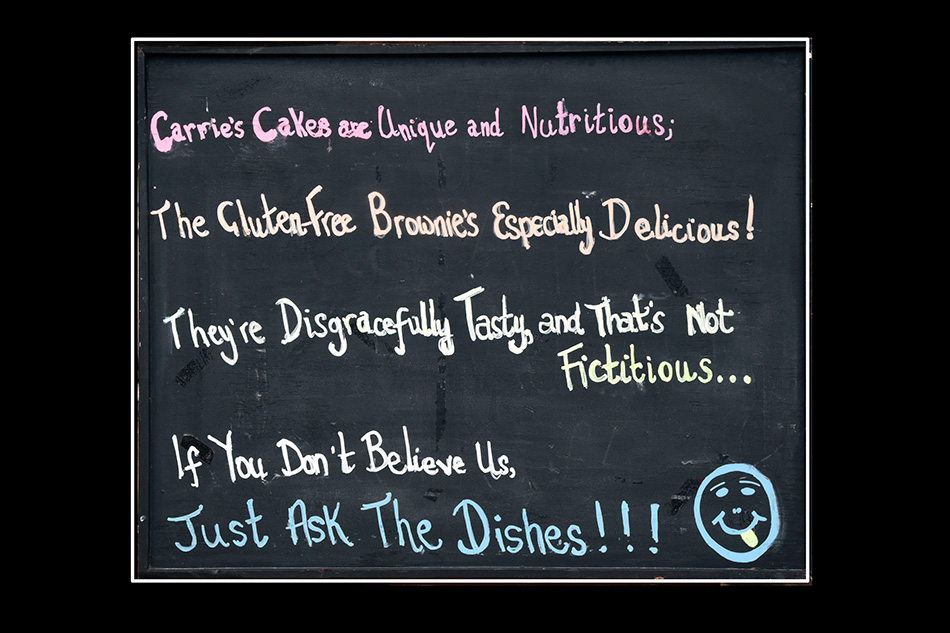 Carrie's Cakes are Unique and Nutritious;
The Gluten-Free Brownie's Especially Delicious!
They're Disgracefully Tasty, and That's Not
Fictitious...
If You Don't Believe Us,
Just Ask The Dishes!!!